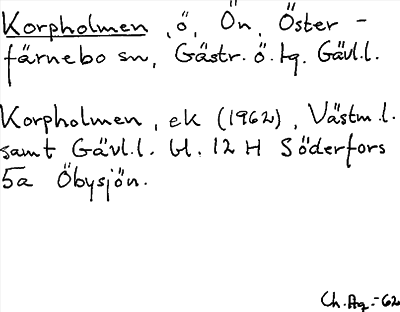 Korpholmen, ö, Ön, Öster-
färnebo sn, Gästr. ö. tg, Gävl.l.
Korpholmen, ek (1962), Västm.l.
samt Gävl.l. bl. 12 H Söderfors
5a Öbysjön.
Ch. Ag. -62